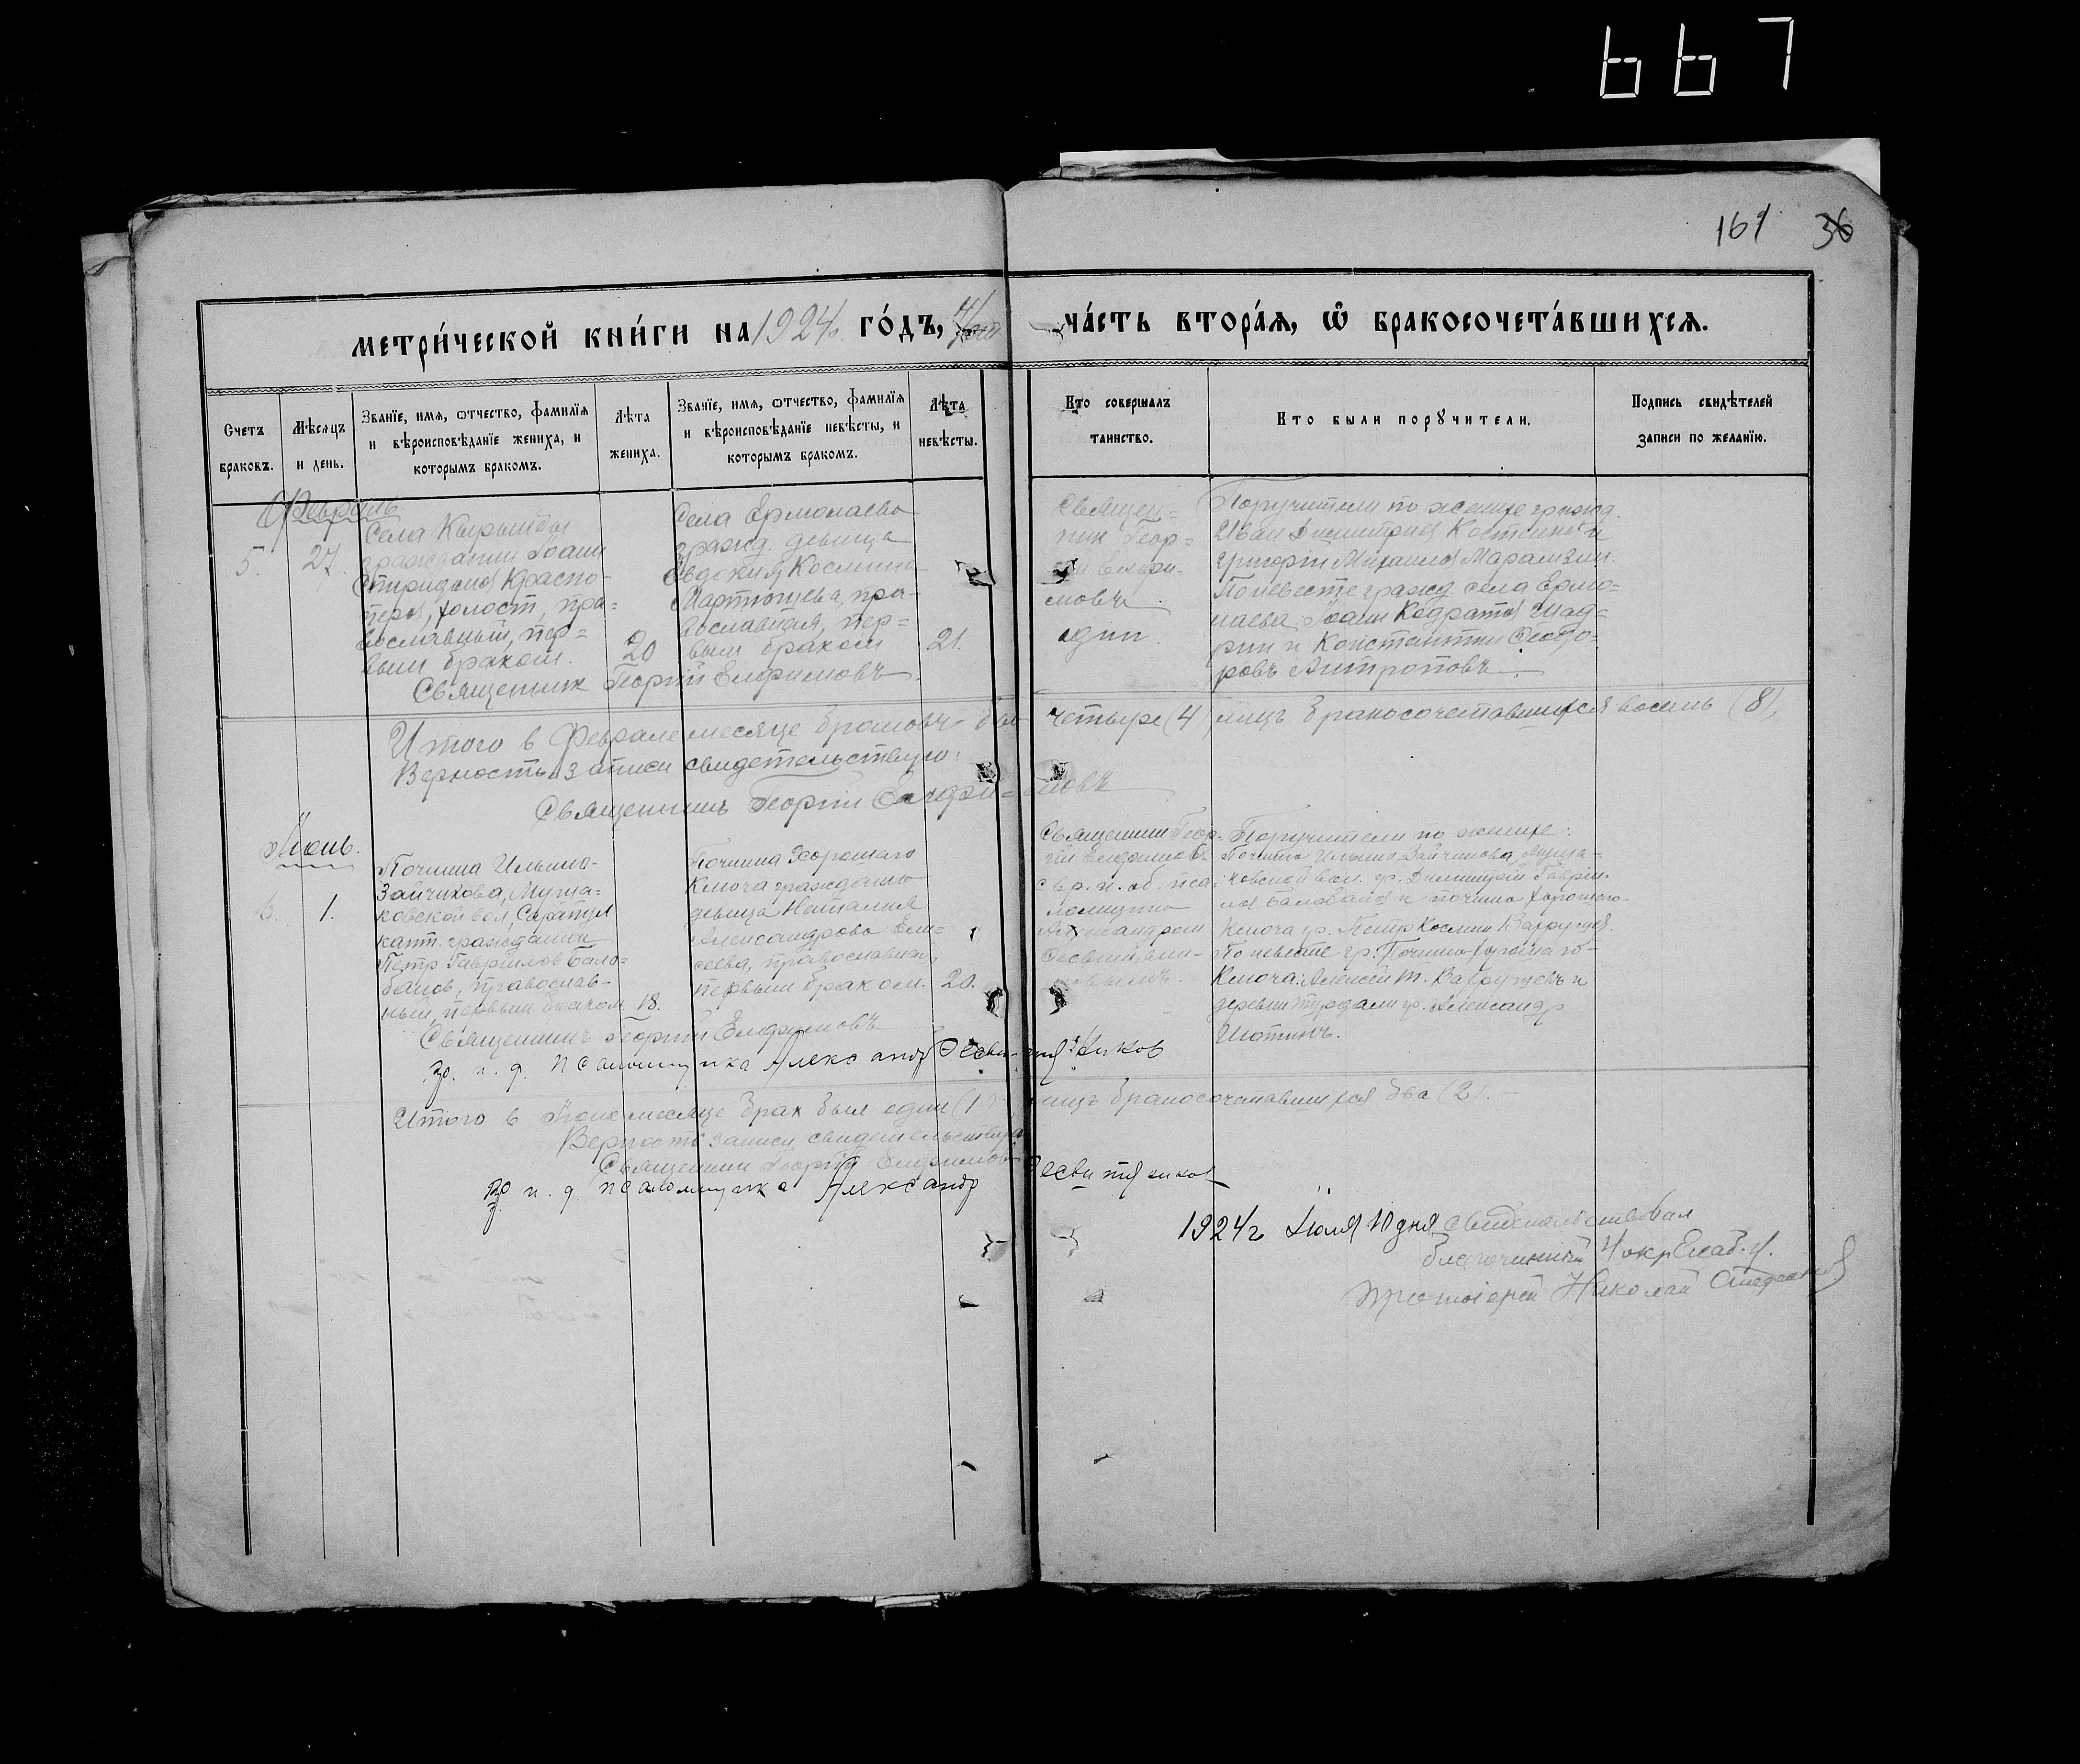 667
161 36
МЕТРИ́ЧЕСКОЙ КНИ́ГИ НА 1924 ГО́ДЪ, ЧА́СТЬ ВТОРА́Я, Ѡ БРАКОСОЧЕТА́ВШИХСЯ.
Счетъ браковъ.
Мѣсяцъ и день.
Званїе, имя, ѻтчество, фамилїя и вѣроисповѣданїе жениха, и которымъ бракомъ.
Лѣта жениха.
Званїе, имя, ѻтчество, фамилїя и вѣроисповѣданїе невѣсты, и которымъ бракомъ.
Лѣта невѣсты.
Кто совершалъ таинство.
Кто были порꙋчители.
Подпись свидѣтелей записи по желанїю.
Февраль
5.
27.
Села
гражданин Іоанн
Спиридонов Красно-
перов, холост, пра=
вославный, пер=
вым браком.
20
Села Ермолаева
гражд. девица
Евдокия Космина
Мартюшева, пра-
вославная, пер=
вым браком
21.
Священ=
ник Геор=
гий Елфи-
мовъ
один
Поручители по женихе гражд.
Иван Димитриев Костенков и
Григорий Михаилов Марамзин.
По невесте гражд. села Ермо=
лаева: Іоанн Кодратов Шад=
рин и Константин Феодо=
ровъ Антроповъ.
Священник Георгий Елфимовъ
Итого в Феврале месяце браковъ был четыре (4) лицъ бракосочетавшихся восемь (8),
Верность записи свидетельствую:
Священникъ Георгий Елфи=мовъ
Июнь.
6.
1.
Починка Ильино-
Зайчикова,
ковской вол, Сарапул
кант. гражданин
Петр Гавриилов Бало=
банов, православ-
ный, первым браком
18.
Починка Хорошаго
Ключа гражданка
девица Наталия
Александрова Ели=
сеева, православная,
первым браком.
20.
Священник Геор-
гий Елфимовъ
с вр. и. об. пса
ломщика
Александром
Поручители по женихе:
Починка Ильино-Зайчикова,
ковской вол. гр. Димитрий Гаврии-
лов Балобанов и починка Хорошего-
Ключа гр. Петр Космин Вахрушев.
По невесте гр. Починка Хорошаго-
Ключа: Алексей Т. Вахрушевъ и
деревни гр. Александр
Шютинъ.
Священникъ Георгий Елфимовъ
Вр. и. д. псаломщика Александр
Итого в Июне месяце брак был один (1) лицъ бракосочетавшихся два (2).
Верность записи свидетельствую
Священник Георгий Елфимовъ
Вр. и. д. псаломщика Александр
1924 г Июля 10 дня свидетельствовал
благочинный 4 окр Елаб. у.
протоіерей Николай Стефанов